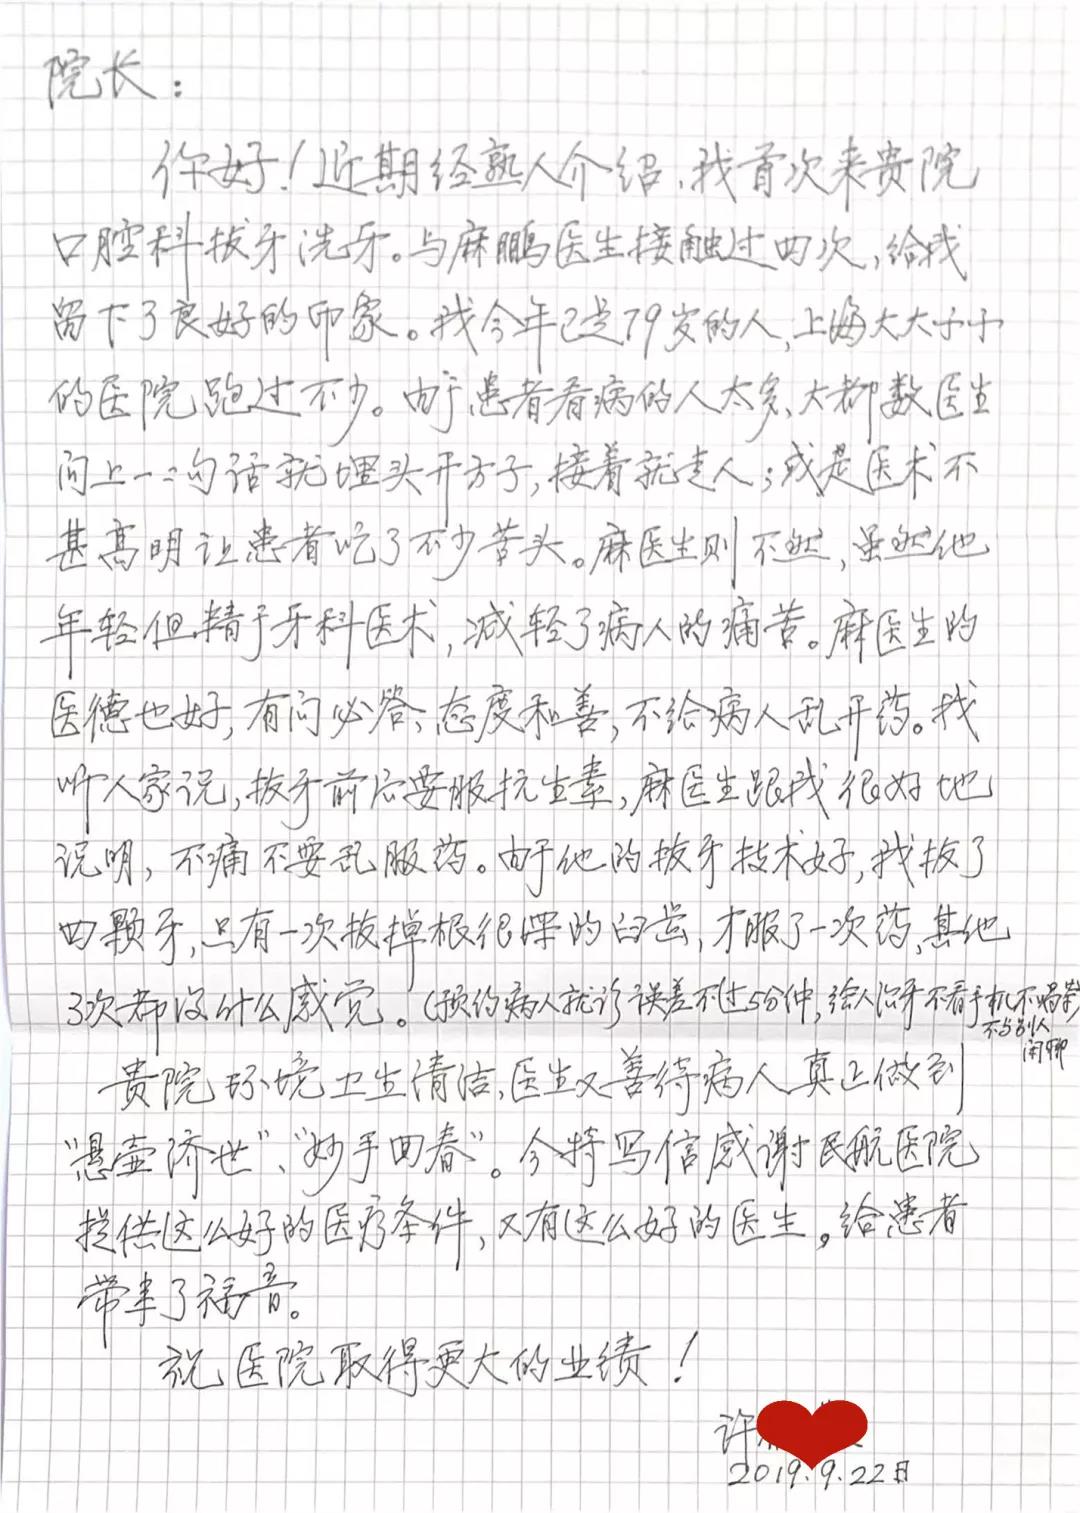 院长：
你好！近期经熟人介绍，我首次来贵院
口腔科拔牙洗牙。与麻鹏医生接触过四次，给我
留下了良好的印象。我今年已是79岁的人，上海大大小小
的医院跑过不少。由于患者看病的人太多、大都数医生
问上一二句话就埋头开方子，接着就走人；或是医术不
甚高明让患者吃了不少苦头。麻医生则不然，虽然他
年轻但精于牙科医术，减轻了病人的痛苦。麻医生的
医德也好，有问必答；态度和善，不给病人乱开药。我
听人家说，拔牙前后要服抗生素，麻医生跟我很好地
说明，不痛不要乱服药。由于他的拔牙技术好，我拔了
四颗牙，只有一次拔掉根很深的臼齿，才服了一次药，其他
3次都没什么感觉。（预约病人就诊误差不过5分钟，给人治牙不看手机不喝茶）
不与别人
闲聊
贵院环境卫生清洁，医生又善待病人真正做到
“悬壶济世”、“妙手回春”。今特写信感谢民航医院
提供这么好的医疗条件，又有这么好的医生，给患者
带来了福音。
祝医院取得更大的业绩！
许
2019.9.22日